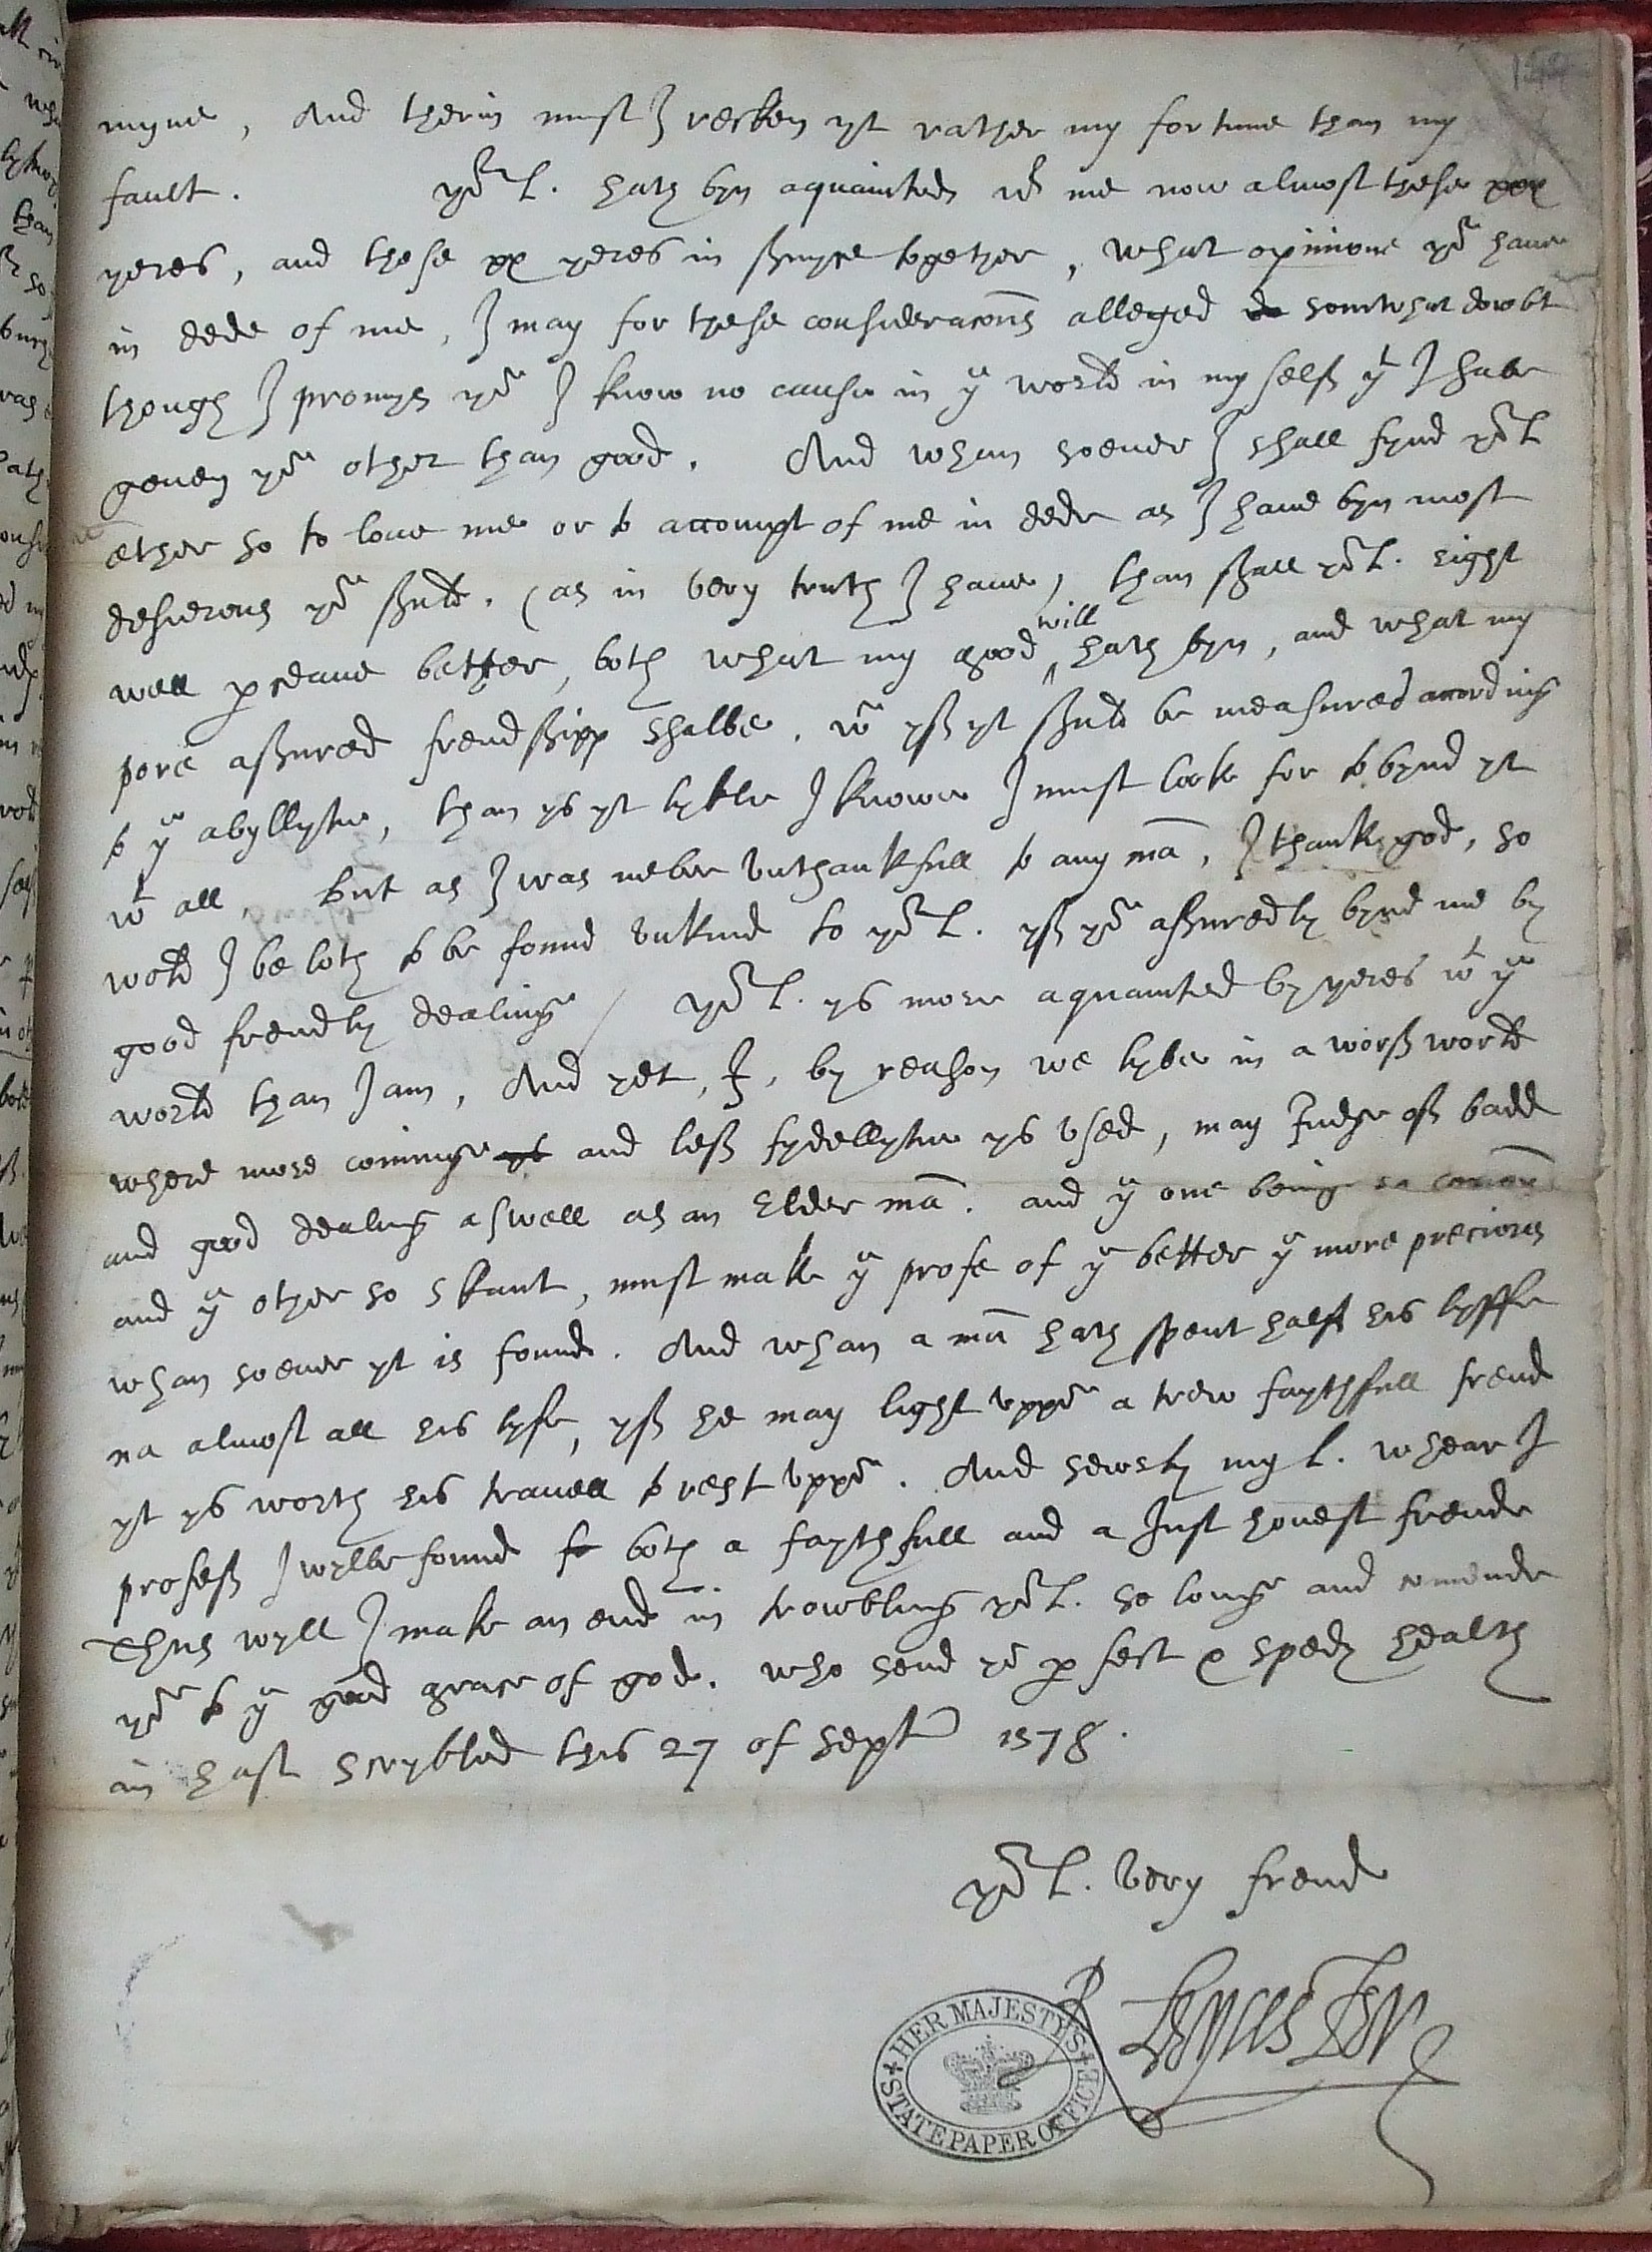 myne, And therin must I recken yt rather my fortune than my
fault. yor L. hath byn aquainted wt me now almost these xxx
yeres, and these xx yeres in servyce together, what opinione yow have
in dede of me, I may for these consideracons alleged do somwhat dowbt
though I promys yow I know no cause in ye world in my self yt I have
geven yow other than good. And whan soever I shall fynd yor L
ether so to love me or to accompt of me in dede as I have byn most
desierous yow shuld, (as in very truth I have) than shall yor L. right
well perceave better, both what my good will hath byn, and what my
pore assured frendshipp shalbe. wch yf yt shuld be measured according
to ye abyllytie, than ys yt lytle I knowe I must look for to bynd yt
wt all, but as I was never unthankfull to any ma, I thank god, so
wold I be loth to be found unkind to yor L. yf yow assuredly bynd me by
good frendly dealing / yor L. ys more aquainted by yeres wt ye
world than I am, And yet, I, by reason we lyve in a worss world
where more coninge ys and less fydellytie ys used, may Judge of badd
and good dealing aswell as an Elder ma. and ye one being so comon
and ye other so skant, must make ye profe of ye better ye more precious
whan soever yt is found. And whan a ma hath spent half his lyffe
na almost all his lyfe, yf he may light uppon a trew faythfull frend
yt ys worth his travell to rest uppon. And sewrly my L. whear I
profess I wylbe found fo both a faythfull and a Just honest frende
Thus wyll I make an end in trowbling yor L. so longe and comende
yow to ye good grace of god. who send yow perfect & spedy health
in hast scrybled this 27 of Septr 1578.
yor L. very frend
R. Leycester
HER MAJESTY'S STATE PAPER OFFICE